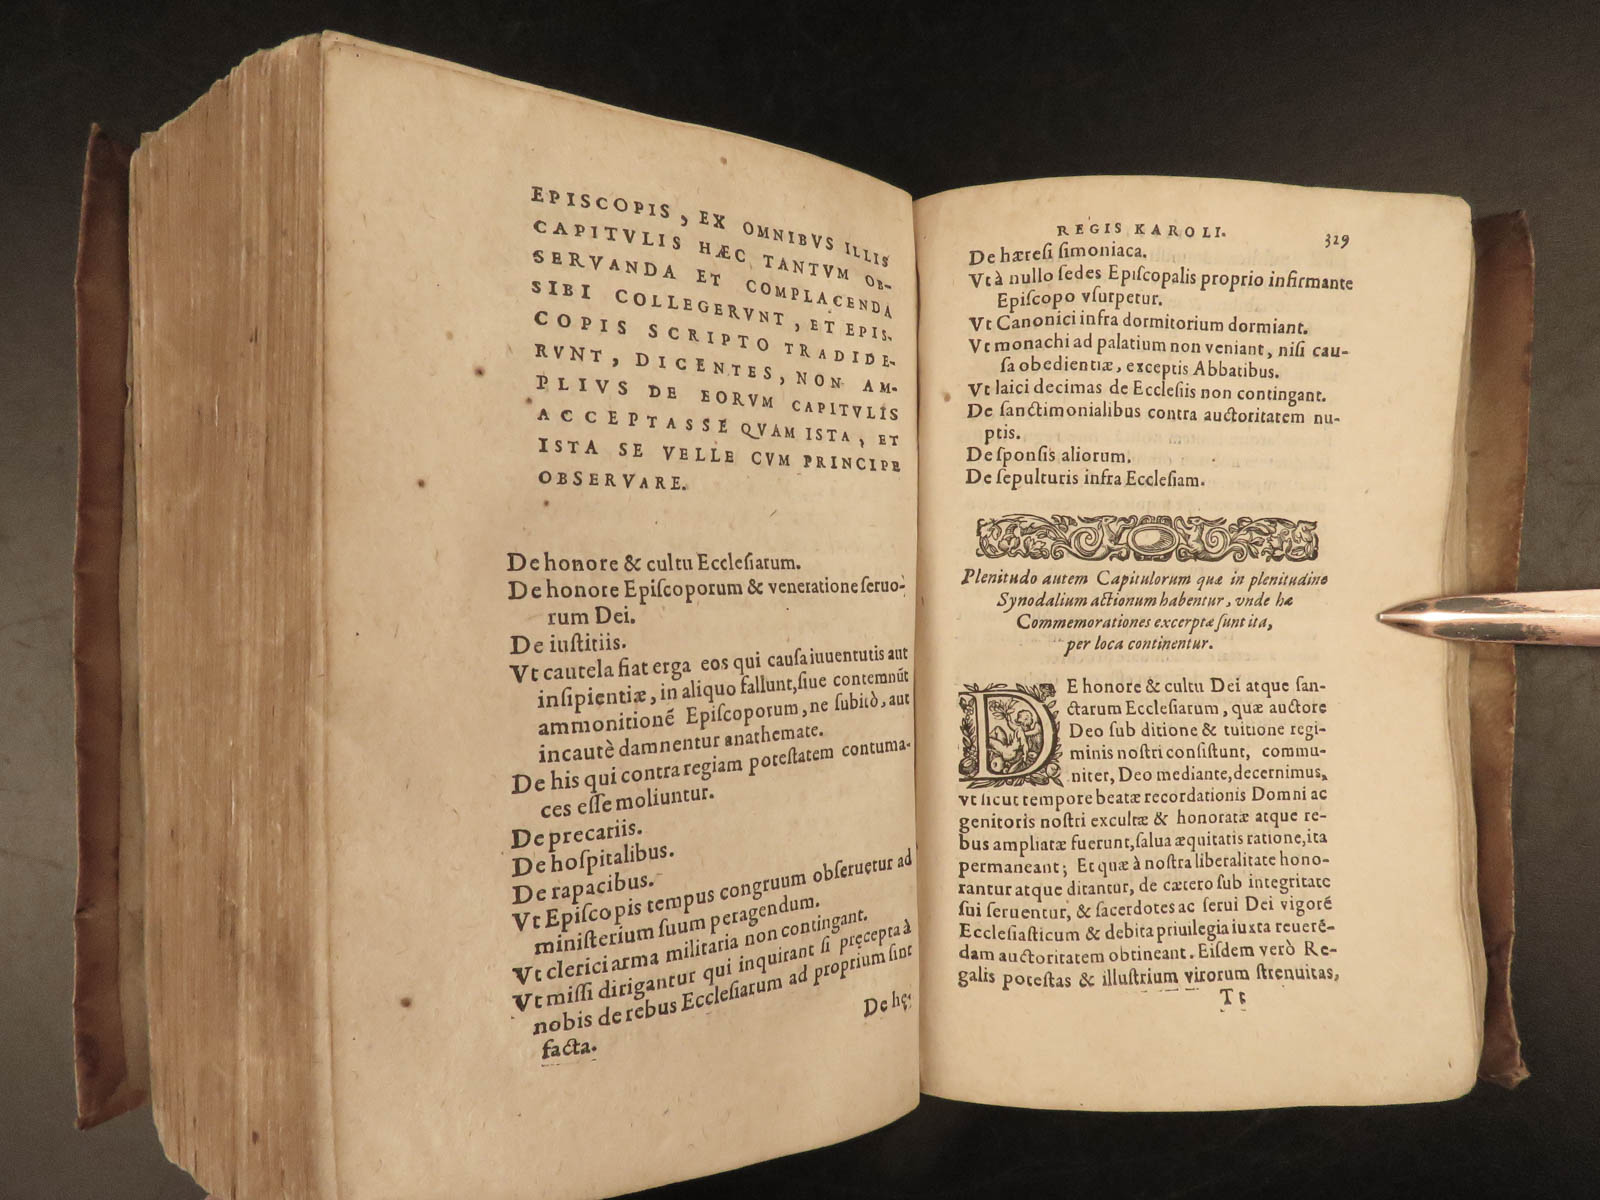 EPISCOPIS, EX OMNIBVS ILLIS
CAPITVLIS HÆC TANTVM OB-
SERVANDA ET COMPLACENDA
SIBI COLLEGERVNT, ET EPIS-
COPIS SCRIPTO TRADIDE-
RVNT, DICENTES, NON AM-
PLIVS DE EORVM CAPITVLIS
ACCEPTASSE QVAM ISTA, ET
ISTA SE VELLE CVM PRINCIPE
OBSERVARE.
De honore & cultu Ecclesiarum.
De honore Epiſcoporum & veneratione ſeruo-
rum Dei.
De iustitiis.
Vt cautela fiat erga eos qui cauſa iuuentutis aut
inſipientiæ, in aliquo fallunt, ſiue contemnūt
ammonitionē Epiſcoporum, ne ſubitò, aut
incautè damnentur anathemate.
De his qui contra regiam poteſtatem contuma-
ces eſſe moliuntur.
De precariis.
De hoſpitalibus.
De rapacibus.
Vt Epiſcopis tempus congruum obſeruetur ad
miniſterium ſuum peragendum.
Vt clerici arma militaria non contingant.
Vt miſſi dirigantur qui inquirant ſi pręcepta à
nobis de rebus Eccleſiarum ad proprium ſint
facta.
De hę-
REGIS KAROLI. 329
De hæreſi ſimoniaca.
Vt à nullo ſedes Epiſcopalis proprio infirmante
Epiſcopo vſurpetur.
Vt Canonici infra dormitorium dormiant.
Vt monachi ad palatium non veniant, niſi cau-
ſa obedientiæ, exceptis Abbatibus.
Vt laici decimas de Eccleſiis non contingant.
De ſanctimonialibus contra auctoritatem nu-
ptis.
De ſponſis aliorum.
De ſepulturis infra Eccleſiam.
Plenitudo autem Capitulorum quæ in plenitudine
Synodalium actionum habentur, vnde hæ
Commemorationes excerptæ ſunt ita,
per loca continentur.
DE honore & cultu Dei atque ſan-
ctarum Eccleſiarum, quæ auctore
Deo ſub ditione & tuitione regi-
minis noſtri conſiſtunt, commu-
niter, Deo mediante, decernimus,
vt ſicut tempore beatæ recordationis Domni ac
genitoris noſtri excultæ & honoratæ atque re-
bus ampliatæ fuerunt, ſalua æquitatis ratione, ita
permaneant; Et quæ à noſtra liberalitate hono-
rantur atque ditantur, de cætero ſub integritate
ſui ſeruentur, & ſacerdotes ac ſerui Dei vigorē
Eccleſiaſticum & debita priuilegia iuxta reuerē-
dam auctoritatem obtineant. Eiſdem verò Re-
galis poteſtas & illuſtrium virorum ſtrenuitas,
T t